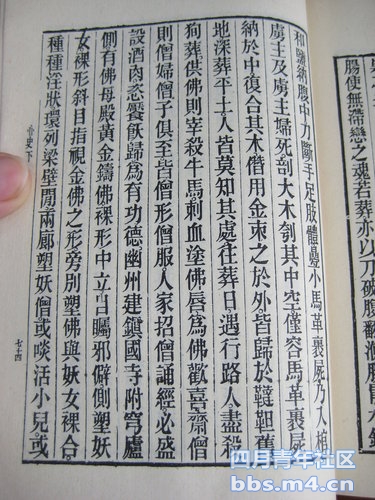 和鹽納腹中刀斷手足肢體疊小馬革裹屍乃入棺
虜主及虜主婦死剖大木刳其中空僅容馬革裹屍
納於中復合其木僭用金束之於外皆歸於韃靼舊
地深葬平土人皆莫知其處往葬日遇行路人盡殺
狗葬供佛則宰殺牛馬刺血塗佛唇爲佛歡喜齋僧
則僧婦僧子俱至皆僧形僧服人家招僧誦經必盛
設酒肉恣餮飫歸爲有功德幽州建鎮國寺附穹廬
側有佛母殿黃金鑄佛裸形中立目矚邪僻側塑妖
女裸形斜目指視金佛之形旁別塑佛與妖女裸合
種種淫狀環列梁壁間兩廊塑妖僧或啖活小兒或
心史下
七十四
腸使無滯戀之魂若葬亦以刀破腹翻滌腸
四月青年社区
bbs.m4.cn